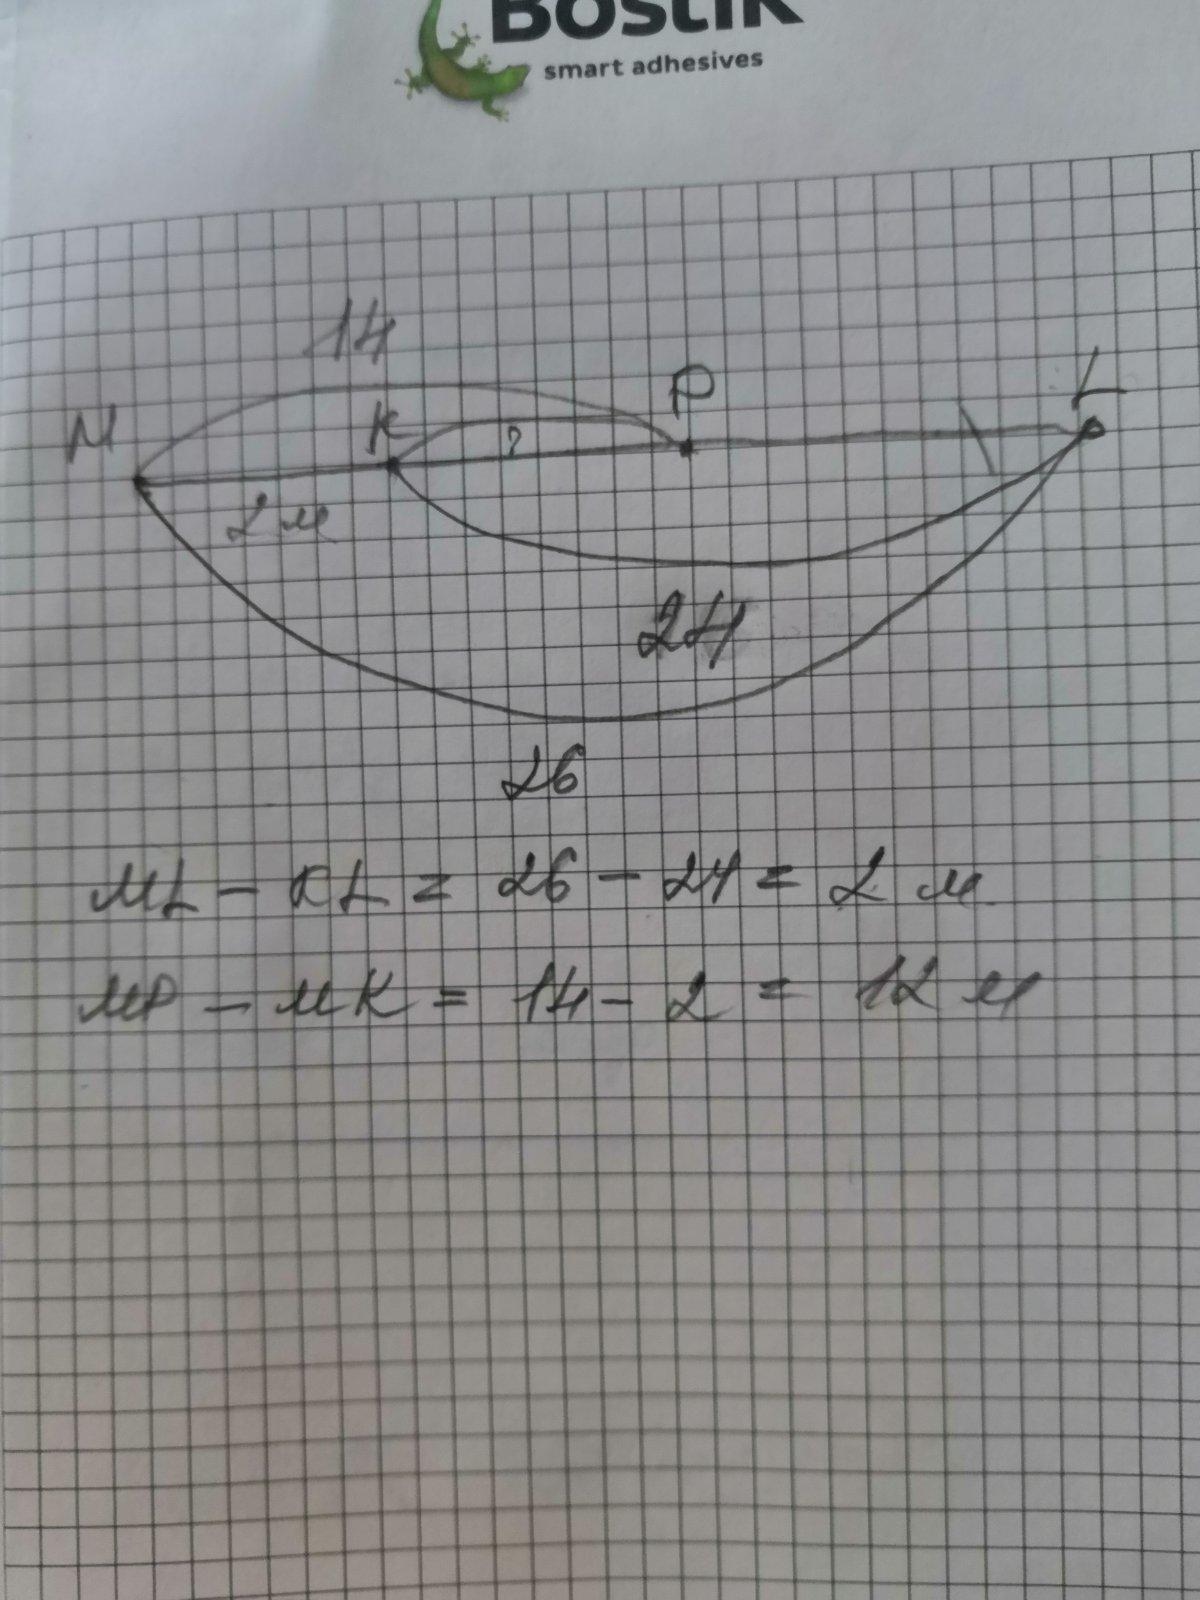 Bostik
smart adhesives
14
M K P L
?
2 м
24
26
ML - KL = 26 - 24 = 2 м
МР - МК = 14 - 2 = 12 м